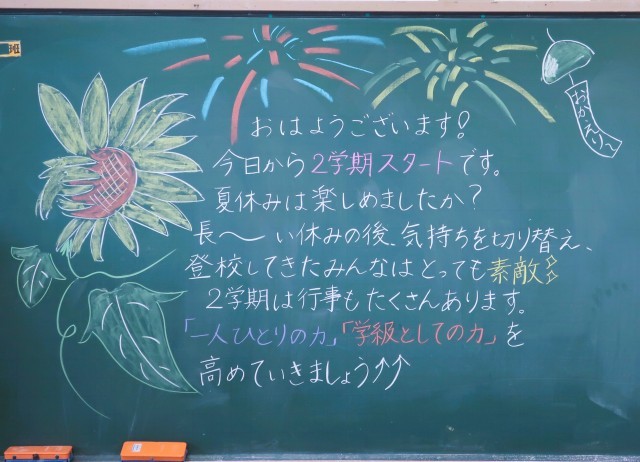 班
おかえり〜
おはようございます!
今日から2学期スタートです。
夏休みは楽しめましたか?
長〜い休みの後、気持ちを切り替え、
登校してきたみんなはとっても素敵☆☆
2学期は行事もたくさんあります。
「一人ひとりの力」「学級としての力」を
高めていきましょう↑↑